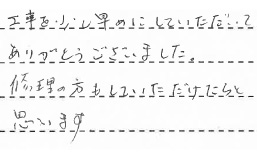 工事を少し早めにしていただいて
ありがとうございました。
修理の方もしていただけたらと
思います